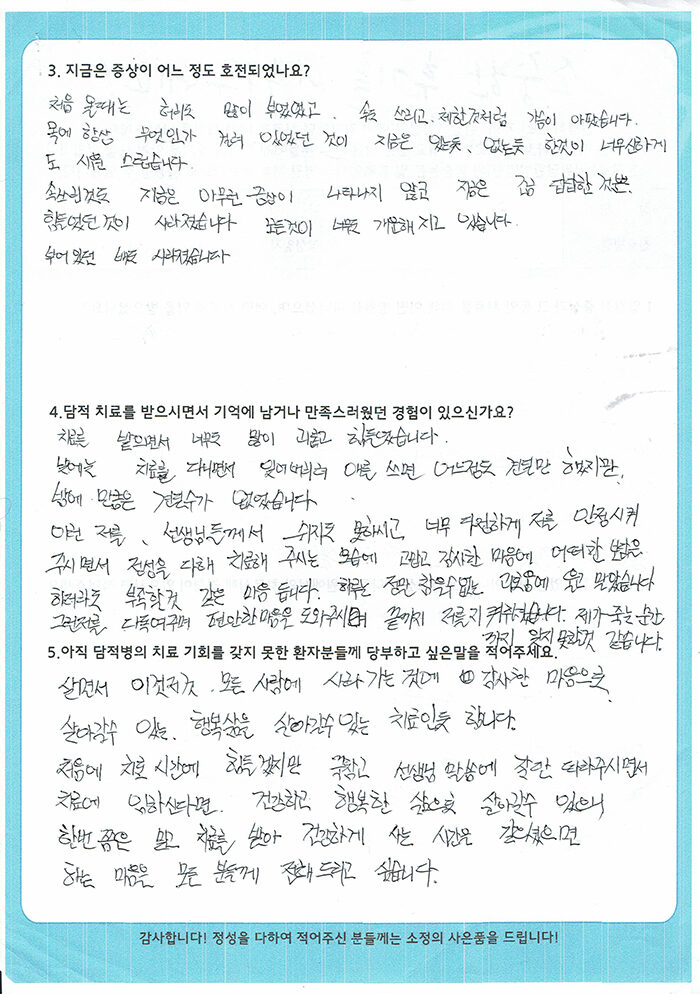 3. 지금은 증상이 어느 정도 호전되었나요?
처음 올때는 허리도 많이 부었었고, 속도 쓰리고, 체한것처럼 가슴이 아팠습니다.
목에 항상 무엇인가 걸려 있었던 것이 지금은 있는듯, 없는듯 한것이 너무신기하게
도 시원 스럽습니다.
속쓰린것도 지금은 아무런 증상이 나타나지 않고 지금은 조금 답답한 것뿐.
힘들었던 것이 사라졌습니다 모든것이 너무도 개운해 지고 있습니다.
부어 있던 배도 사라졌습니다
4.담적 치료를 받으시면서 기억에 남거나 만족스러웠던 경험이 있으신가요?
치료를 받으면서 너무도 많이 괴롭고 힘들었습니다.
낮에는 치료를 다니면서 잊어버리려 애를 쓰면 어느정도 견딜만 했지만,
밤에 만큼은 견딜수가 없었습니다.
이런 저를, 선생님들께서 쉬지도 못하시고 너무 따뜻하게 저를 안정시켜
주시면서 정성을 다해 치료해 주시는 모습에 고맙고 감사한 마음에 어떠한 보답은
하더라도 부족할것 같은 마음 듭니다. 하루는 정말 참을수없는 고통에 울고 말았습니다
그런저를 다독여주며 편안한마음을 도와주시며 끝까지 저를 지켜주셨습니다. 제가 죽는 순간
까지 잊지 못할것 같습니다.
5.아직 담적병의 치료 기회를 갖지 못한 환자분들께 당부하고 싶은말을 적어주세요.
살면서 이것저것, 모든 사람에 사라 가는 것에 감사한 마음으로
살아갈수 있는, 행복삶을 살아갈수 있는 치료인듯 합니다.
처음에 치료 시간에 힘들겠지만 꾹참고 선생님 말씀에 잘만 따라주시면서
치료에 임하신다면, 건강하고 행복한 삶으로 살아갈수 있으니
한번쯤은 믿고 치료를 받아 건강하게 사는 시간을 갖으셨으면
하는 마음을 모든 분들께 전해 드리고 싶습니다.
감사합니다! 정성을 다하여 적어주신 분들께는 소정의 사은품을 드립니다!